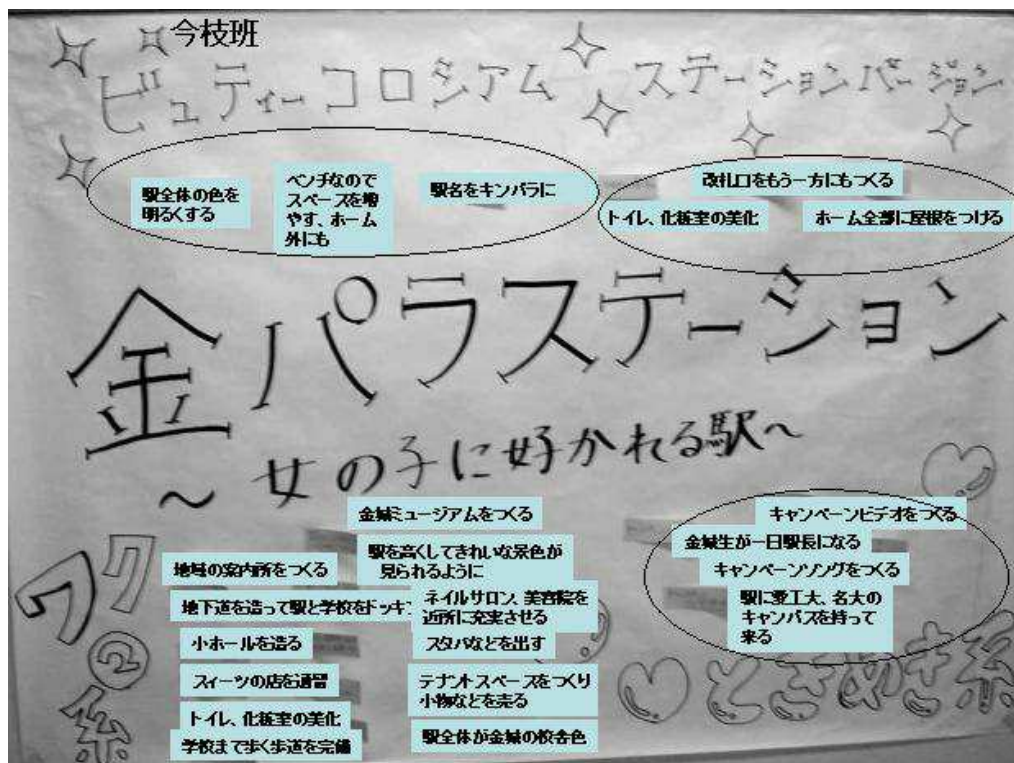 今枝班
ビューティーコロシアム ステーションバージョン
駅全体の色を
明るくする
ベンチなので
スペースを増
やす、ホーム
外にも
駅名をキンパラに
改札口をもう一方にもつくる
トイレ、化粧室の美化
ホーム全部に屋根をつける
金パラステーション
～女の子に好かれる駅～
金城ミュージアムをつくる
駅を高くしてきれいな景色が
見られるように
地域の案内所をつくる
地下道を造って駅と学校をドッキン
ネイルサロン、美容院を
近所に充実させる
小ホールを造る
スタバなどを出す
スイーツの店を
テナントスペースをつくり
小物などを売る
トイレ、化粧室の美化
学校まで歩く歩道を完備
駅全体が金城の校舎色
キャンペーンビデオをつくる
金城生が一日駅長になる
キャンペーンソングをつくる
駅に愛工大、名大の
キャンパスを持って
来る
ワク②系
ときめき系